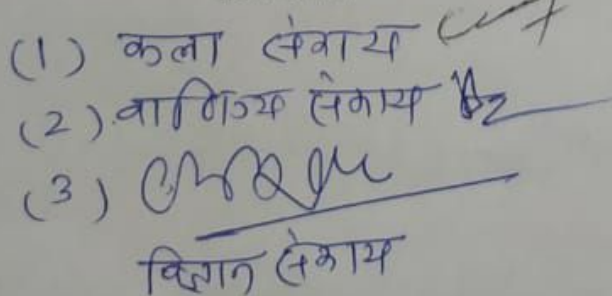 (1) कला संकाय
(2) वाणिज्य संकाय
(3)
विज्ञान संकाय